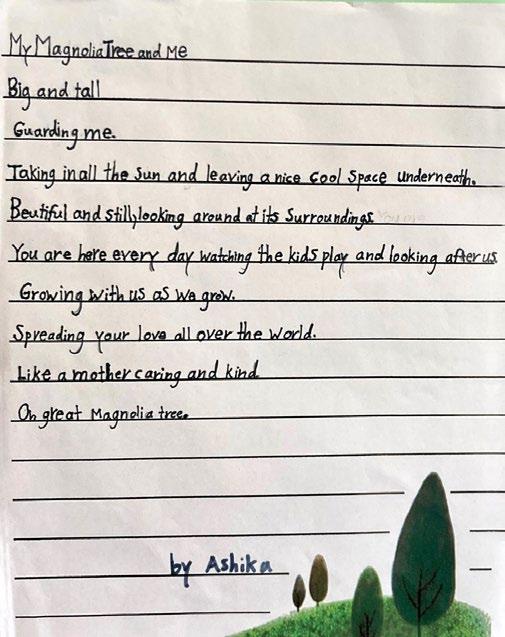 My Magnolia Tree and Me
Big and tall
Guarding me.
Taking in all the sun and leaving a nice cool space underneath.
Beutiful and still, looking around at its surroundings.
You are here every day watching the kids play and looking after us.
Growing with us as we grow.
Spreading your love all over the world.
Like a mother caring and kind
Oh great Magnolia tree.
by Ashika